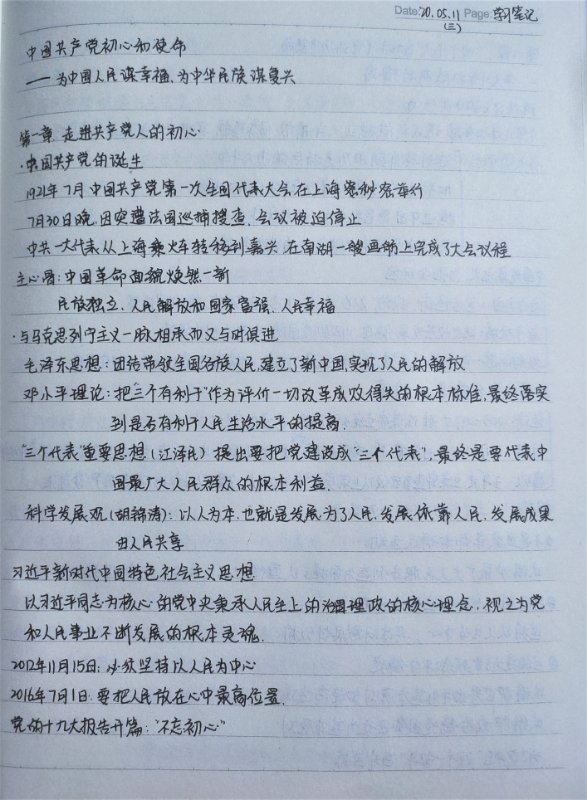 Date: 20.05.11 Page: 学习笔记
(三)
中国共产党初心和使命
——为中国人民谋幸福,为中华民族谋复兴
第一章 走进共产党人的初心
·中国共产党的诞生
1921年7月 中国共产党第一次全国代表大会在上海秘密举行
7月30日晚,因突遭法国巡捕搜查,会议被迫停止
中共一大代表从上海乘火车转移到嘉兴,在南湖一艘画舫上完成了大会议程
主心骨:中国革命面貌焕然一新
民族独立、人民解放和国家富强、人民幸福
·与马克思列宁主义一脉相承而又与时俱进
毛泽东思想:团结带领全国各族人民,建立了新中国,实现了人民的解放
邓小平理论:把"三个有利于"作为评价一切改革成败得失的根本标准,最终落实
到是否有利于人民生活水平的提高
"三个代表"重要思想(江泽民):提出要把党建设成"三个代表",最终是要代表中
国最广大人民群众的根本利益.
科学发展观(胡锦涛):以人为本,也就是发展为了人民,发展依靠人民,发展成果
由人民共享
习近平新时代中国特色社会主义思想
以习近平同志为核心的党中央秉承人民至上的治国理政的核心理念,视之为党
和人民事业不断发展的根本灵魂.
2012年11月15日:必须坚持以人民为中心
2016年7月1日:要把人民放在心中最高位置.
党的十九大报告开篇:"不忘初心"